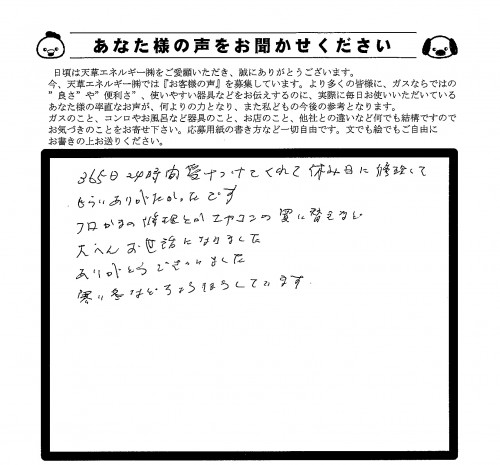 あなた様の声をお聞かせください
日頃は天草エネルギー㈱をご愛願いただき、誠にありがとうございます。
今、天草エネルギー㈱では『お客様の声』を募集しています。より多くの皆様に、ガスならではの
”良さ”や”便利さ”、使いやすい器具などをお伝えするのに、実際に毎日お使いいただいている
あなた様の率直なお声が、何よりの力となり、また私どもの今後の参考となります。
ガスのこと、コンロやお風呂など器具のこと、お店のこと、他社との違いなど何でも結構ですので
お気づきのことをお寄せ下さい。応募用紙の書き方など一切自由です。文でも絵でもご自由に
お書きの上お送りください。
365日24時間受けつけてくれて休み日に修理して
もらいありがたかったです
フロがまの修理とかエアコンの買い替えなど
大へんお世話になりました
ありがとうございました
寒い冬など
しています